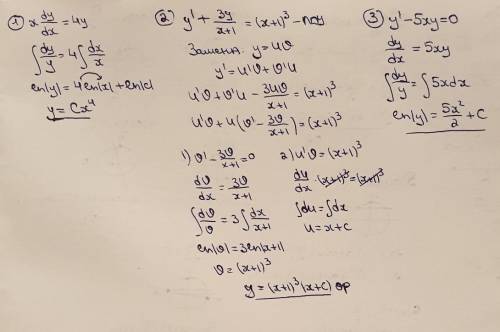 ① x dy/dx = 4y
∫ dy/y = 4 ∫ dx/x
ln|y| = 4 ln|x| + ln|c|
y = Cx⁴
② y' + 3y/x+1 = (x+1)³
Замена: y = uv
y' = u'v + v'u
u'v + v'u - 3uv/x+1 = (x+1)³
u'v + u(v' - 3v/x+1) = (x+1)³
1) v' - 3v/x+1 = 0
dv/dx = 3v/x+1
∫ dv/v = 3 ∫ dx/x+1
ln|v| = 3 ln|x+1|
v = (x+1)³
2) u'v = (x+1)³
du/dx · (x+1)³ = (x+1)³
∫ du = ∫ dx
u = x + C
y = (x+1)³(x+C) ор
③ y' - 5xy = 0
dy/dx = 5xy
∫ dy/y = ∫ 5x dx
ln|y| = 5x²/2 + C